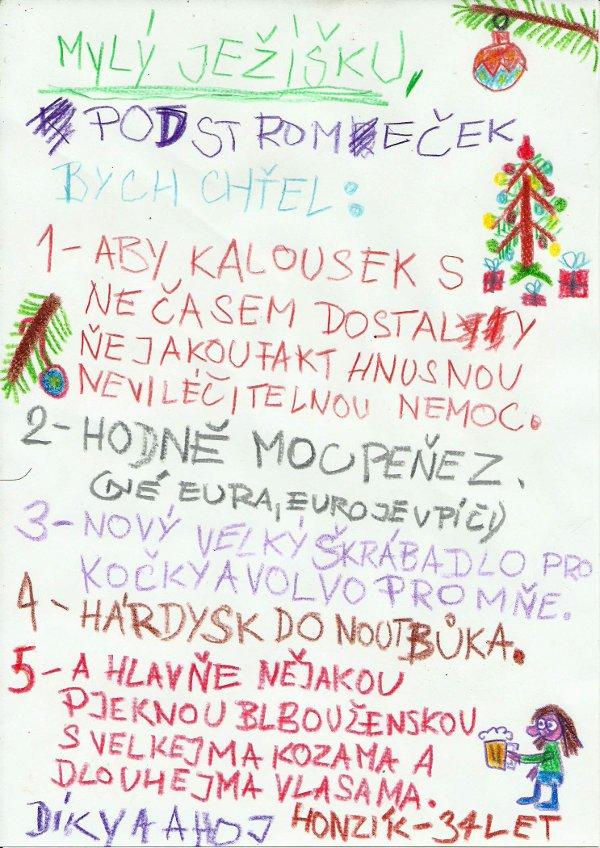 MYLÝ JEŽÍŠKU,
PODSTROMEČEK
BYCH CHŤEL:
1- ABY KALOUSEK S
NEČASEM DOSTALY
ŇEJAKOUFAKT HNUSNOU
NEVILÉČITELNOU NEMOC.
2- HODNĚ MOCPEŇEZ.
(NÉ EURA, EUROJEVPÍČI)
3- NOVÝ VELKÝ ŠKRÁBADLO PRO
KOČKY A VOLVO PRO MŇE.
4- HÁRDYSK DO NOUTBŮKA.
5- A HLAVŇE NĚJAKOU
PJEKNOU BLBOUŽENSKOU
S VELKEJMA KOZAMA A
DLOUHEJMA VLASAMA.
DÍKY A AHOJ HONZÍK-34LET